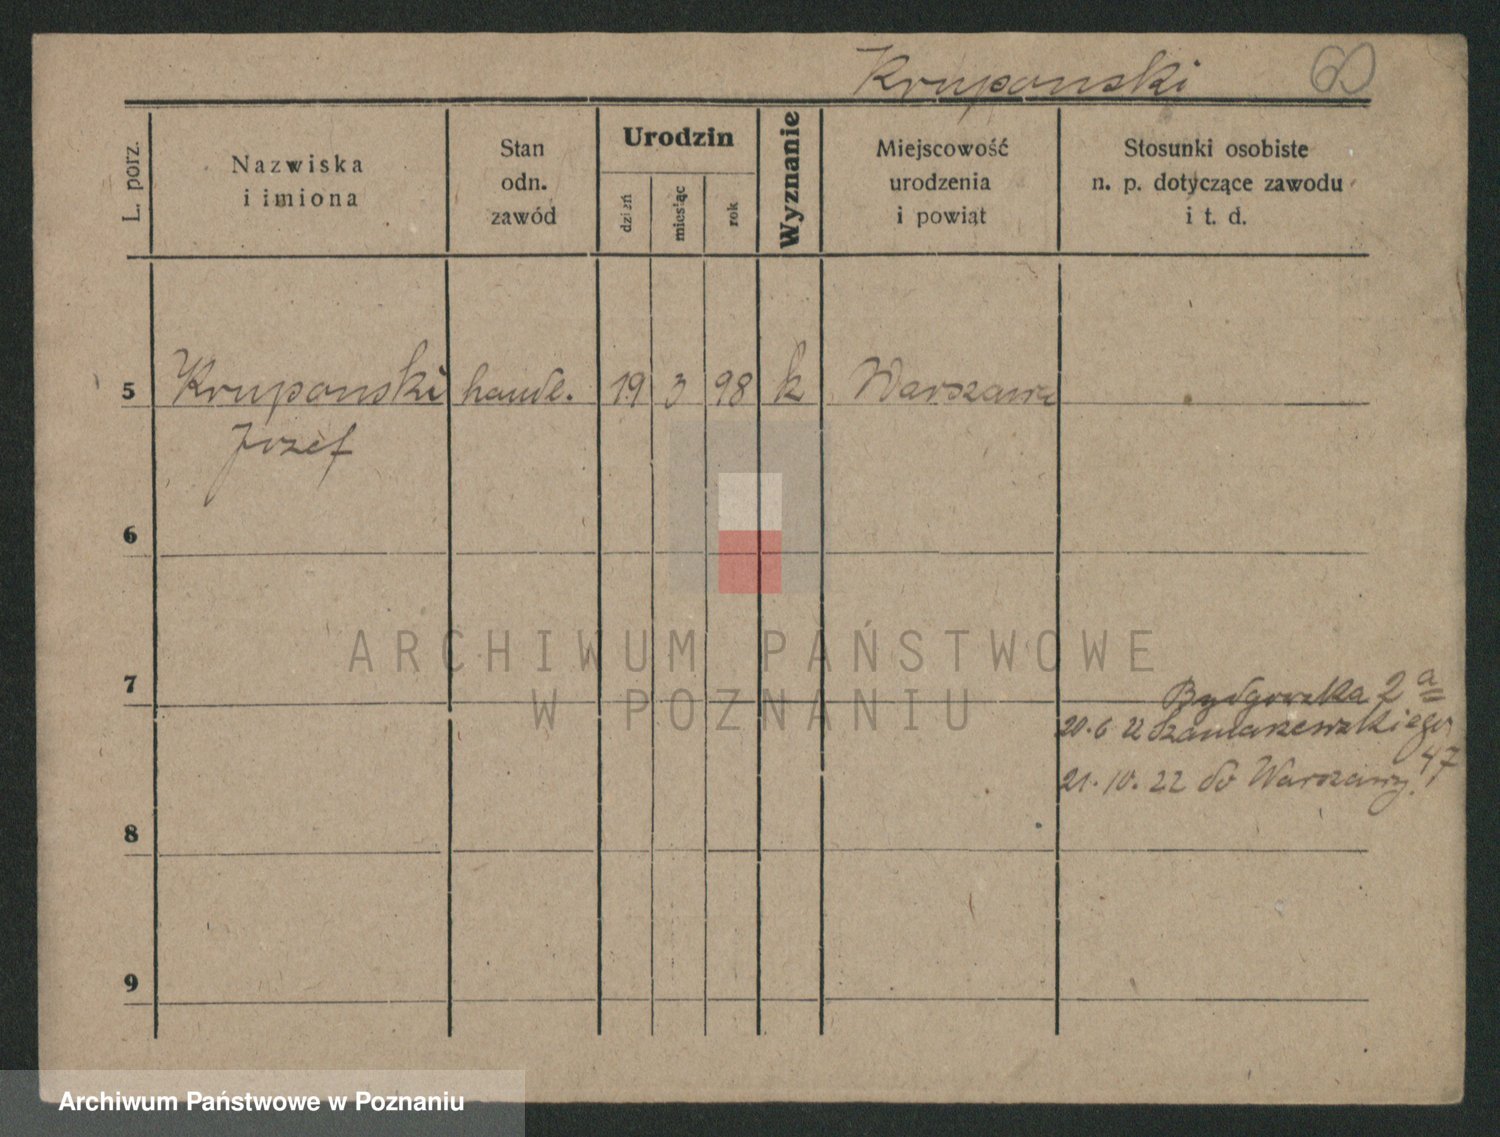 Kruponski 60
L. porz.
Nazwiska
i imiona
Stan
odn.
zawód
Urodzin
dzień
miesiąc
rok
Wyznanie
Miejscowość
urodzenia
i powiat
Stosunki osobiste
n. p. dotyczące zawodu
i t. d.
5 Kruponski handl. 19 3 98 k Warszawa
Jozef
6
ARCHIWUM PAŃSTWOWE
W POZNANIU
7 Bydgowska 2 a
20.6 22 Szamarzewskiego
47
21.10.22 do Warszawy.
8
9
Archiwum Państwowe w Poznaniu